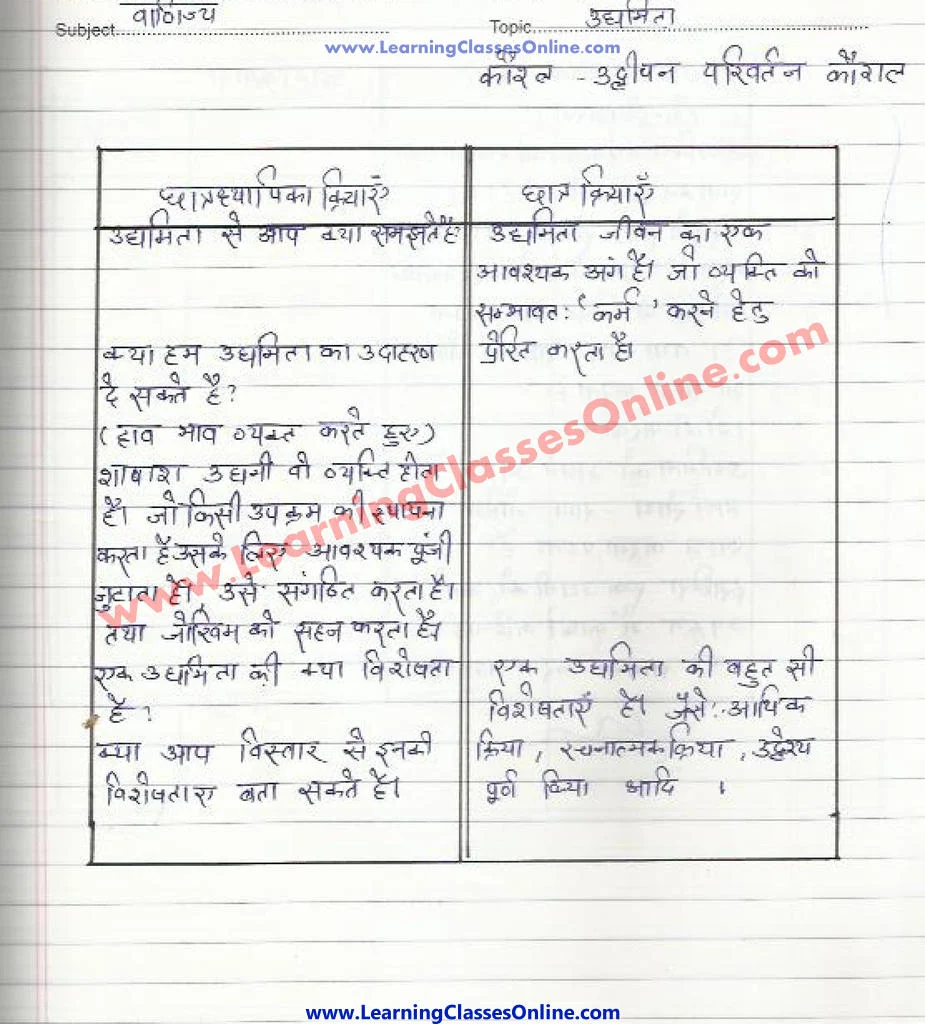 वाणिज्य
Subject
उद्यमिता
Topic
www.LearningClassesOnline.com
कौशल - उद्दीपन परिवर्तन कौशल
छात्रध्यापिका क्रियाएँ
उद्यमिता से आप क्या समझते है?
क्या हम उद्यमिता का उदाहरण
दे सकते है?
(हाव भाव व्यक्त करते हुए)
शाबाश उद्यमी वो व्यक्ति होता
है। जो किसी उपक्रम की स्थापना
करता है उसके लिए आवश्यक पूंजी
जुटाता है। उसे संगठित करता है।
तथा जोखिम को सहन करता है।
एक उद्यमिता की क्या विशेषता
है?
क्या आप विस्तार से इनकी
विशेषताए बता सकते है।
छात्र क्रियाएँ
उद्यमिता जीवन का एक
आवश्यक अंग है। जो व्यक्ति को
सम्भावत: 'कर्म' करने हेतु
प्रेरित करता है।
एक उद्यमिता की बहुत सी
विशेषताएँ है। जैसे:- आर्थिक
क्रिया, रचनात्मक क्रिया, उद्देश्य
पूर्ण क्रिया आदि ।
www.LearningClassesOnline.com
www.LearningClassesOnline.com